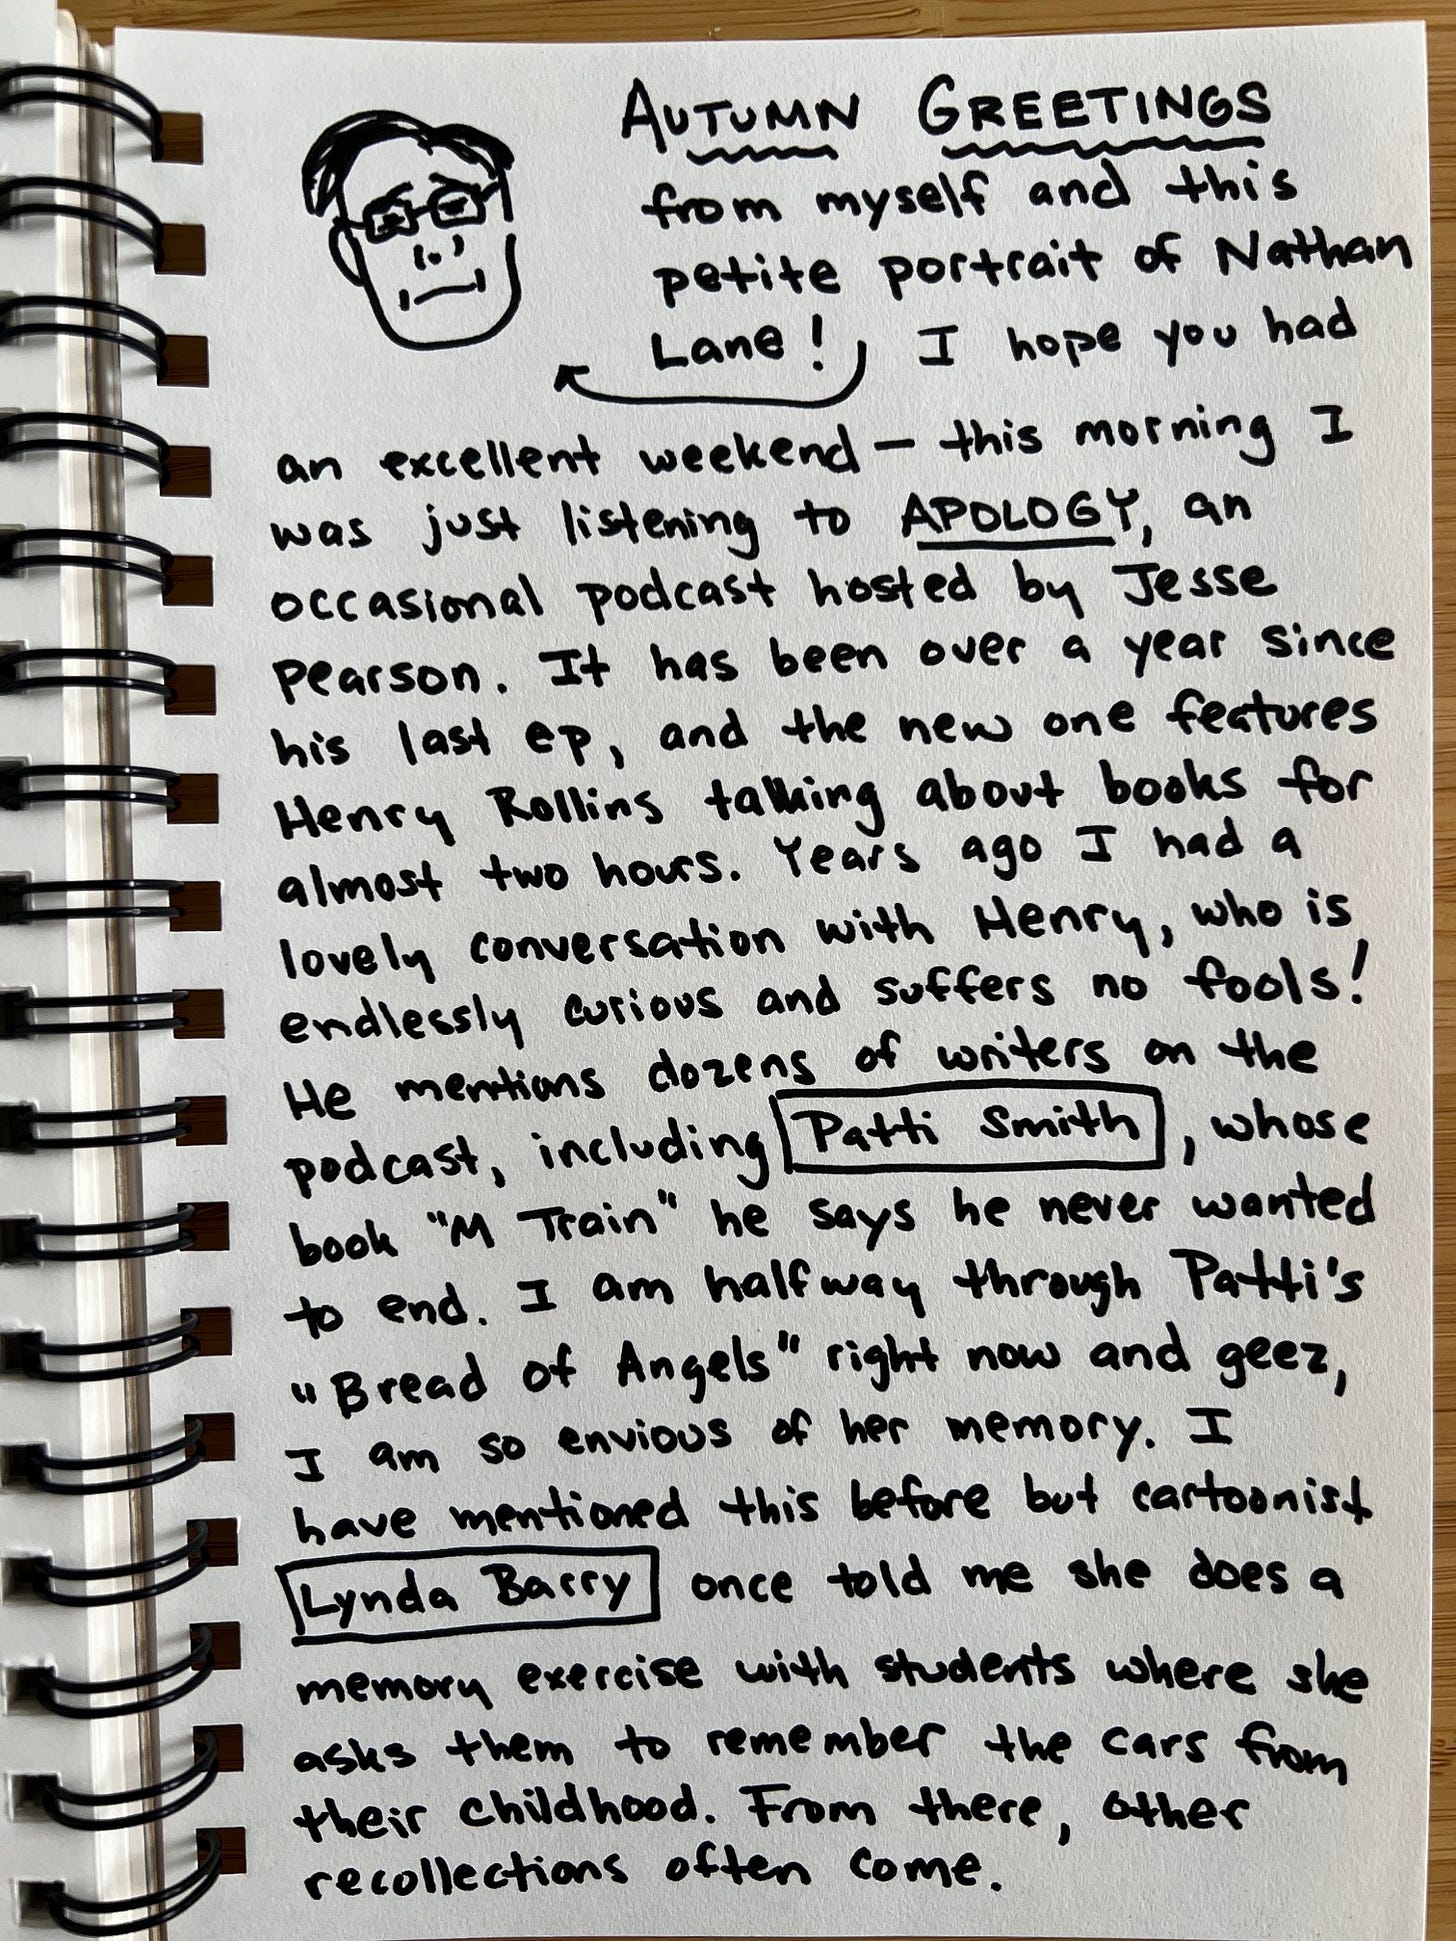 AUTUMN GREETINGS
from myself and this
petite portrait of Nathan
Lane! I hope you had
an excellent weekend — this morning I
was just listening to APOLOGY, an
occasional podcast hosted by Jesse
Pearson. It has been over a year since
his last ep, and the new one features
Henry Rollins talking about books for
almost two hours. Years ago I had a
lovely conversation with Henry, who is
endlessly curious and suffers no fools!
He mentions dozens of writers on the
podcast, including Patti Smith, whose
book "M Train" he says he never wanted
to end. I am halfway through Patti's
"Bread of Angels" right now and geez,
I am so envious of her memory. I
have mentioned this before but cartoonist
Lynda Barry once told me she does a
memory exercise with students where she
asks them to remember the cars from
their childhood. From there, other
recollections often come.